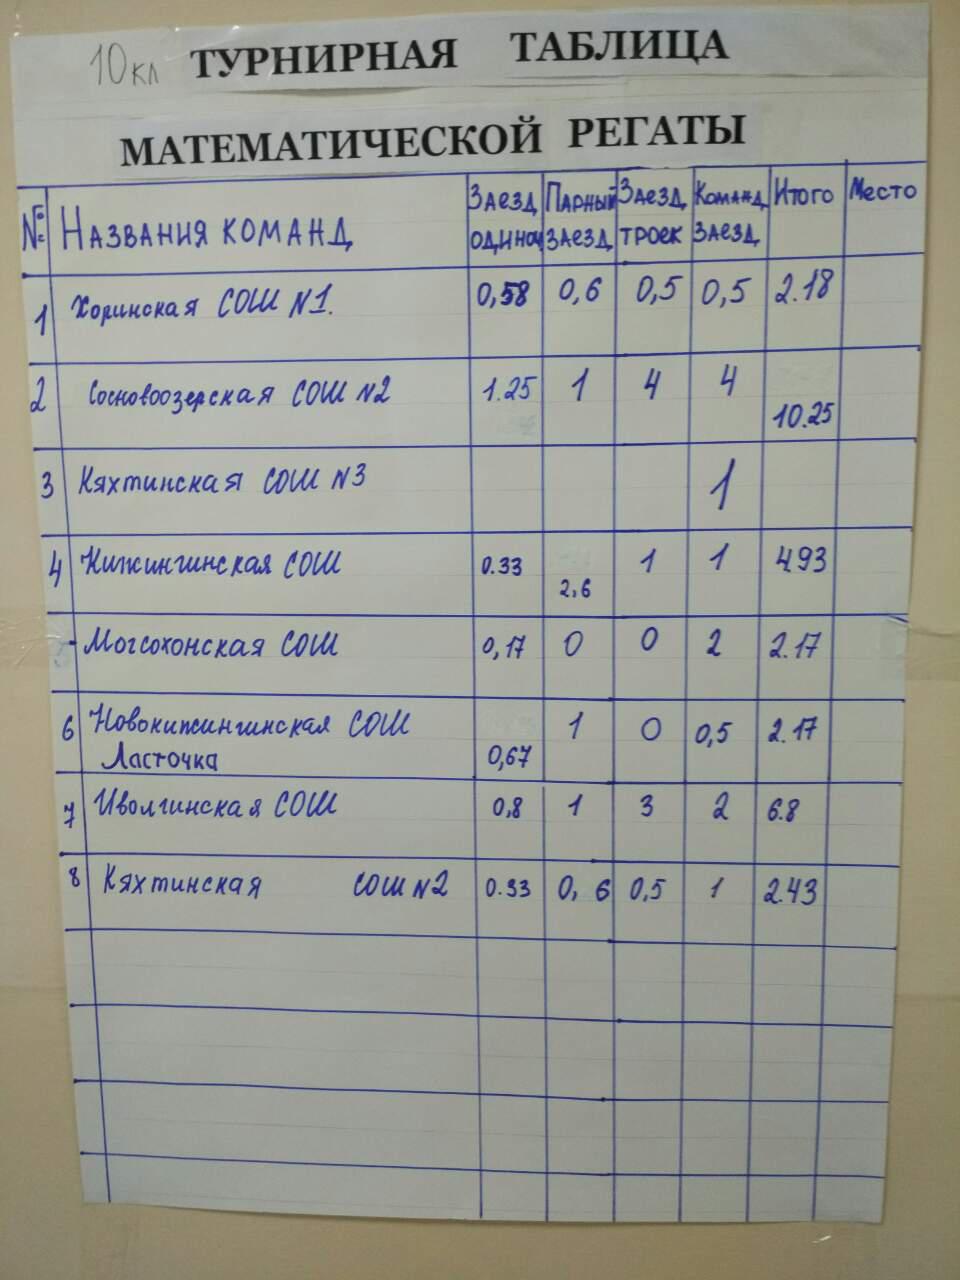 10кл ТУРНИРНАЯ ТАБЛИЦА
МАТЕМАТИЧЕСКОЙ РЕГАТЫ
№ НАЗВАНИЯ КОМАНД ЗАЕЗД ОДИНОЧ ПАРНЫЙ ЗАЕЗД ЗАЕЗД ТРОЕК КОМАНД ЗАЕЗД ИТОГО МЕСТО
1 Хоринская СОШ N1. 0,58 0,6 0,5 0,5 2.18
2 Сосновоозерская СОШ N2 1.25 1 4 4 10.25
3 Кяхтинская СОШ N3 1
4 Кижингинская СОШ 0.33 2,6 1 1 4.93
Могсохонская СОШ 0,17 0 0 2 2.17
6 Новокижингинская СОШ 0,67 1 0 0,5 2.17
Ласточка
7 Иволгинская СОШ 0,8 1 3 2 6.8
8 Кяхтинская СОШ N2 0.33 0,6 0,5 1 2.43